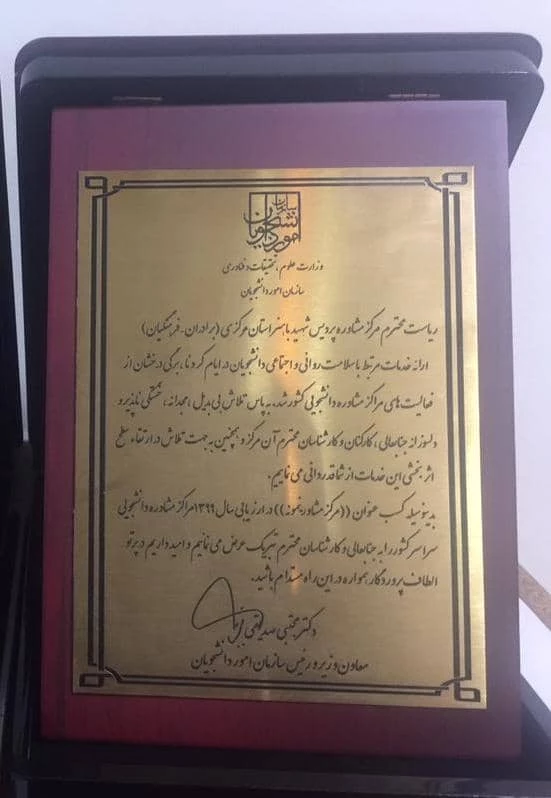 سازمان امور دانشجویان
وزارت علوم، تحقیقات و فناوری
سازمان امور دانشجویان
ریاست محترم مرکز مشاوره پردیس شهید باهنر استان مرکزی (برادران-فرهنگیان)
ارائه خدمات مرتبط با سلامت روانی و اجتماعی دانشجویان در ایام کرونا، برگی درخشان از
فعالیت های مراکز مشاوره دانشجویی کشور شد. به پاس تلاش بی بدیل، مجدانه، خستگی ناپذیر و
دلسوزانه جنابعالی، کارکنان و کارشناسان محترم آن مرکز و همچنین به جهت تلاش در ارتقاء سطح
اثربخشی این خدمات از شما قدردانی می نماییم.
بدینوسیله کسب عنوان ((مرکز مشاوره نمونه)) در ارزیابی سال ۱۳۹۹ مراکز مشاوره دانشجویی
سراسر کشور را به جنابعالی و کارشناسان محترم تبریک عرض می نمائیم و امید داریم در پرتو
الطاف پروردگار همواره در این راه مستدام باشید.
دکتر مجتبی صدیقی
معاون وزیر و رئیس سازمان امور دانشجویان